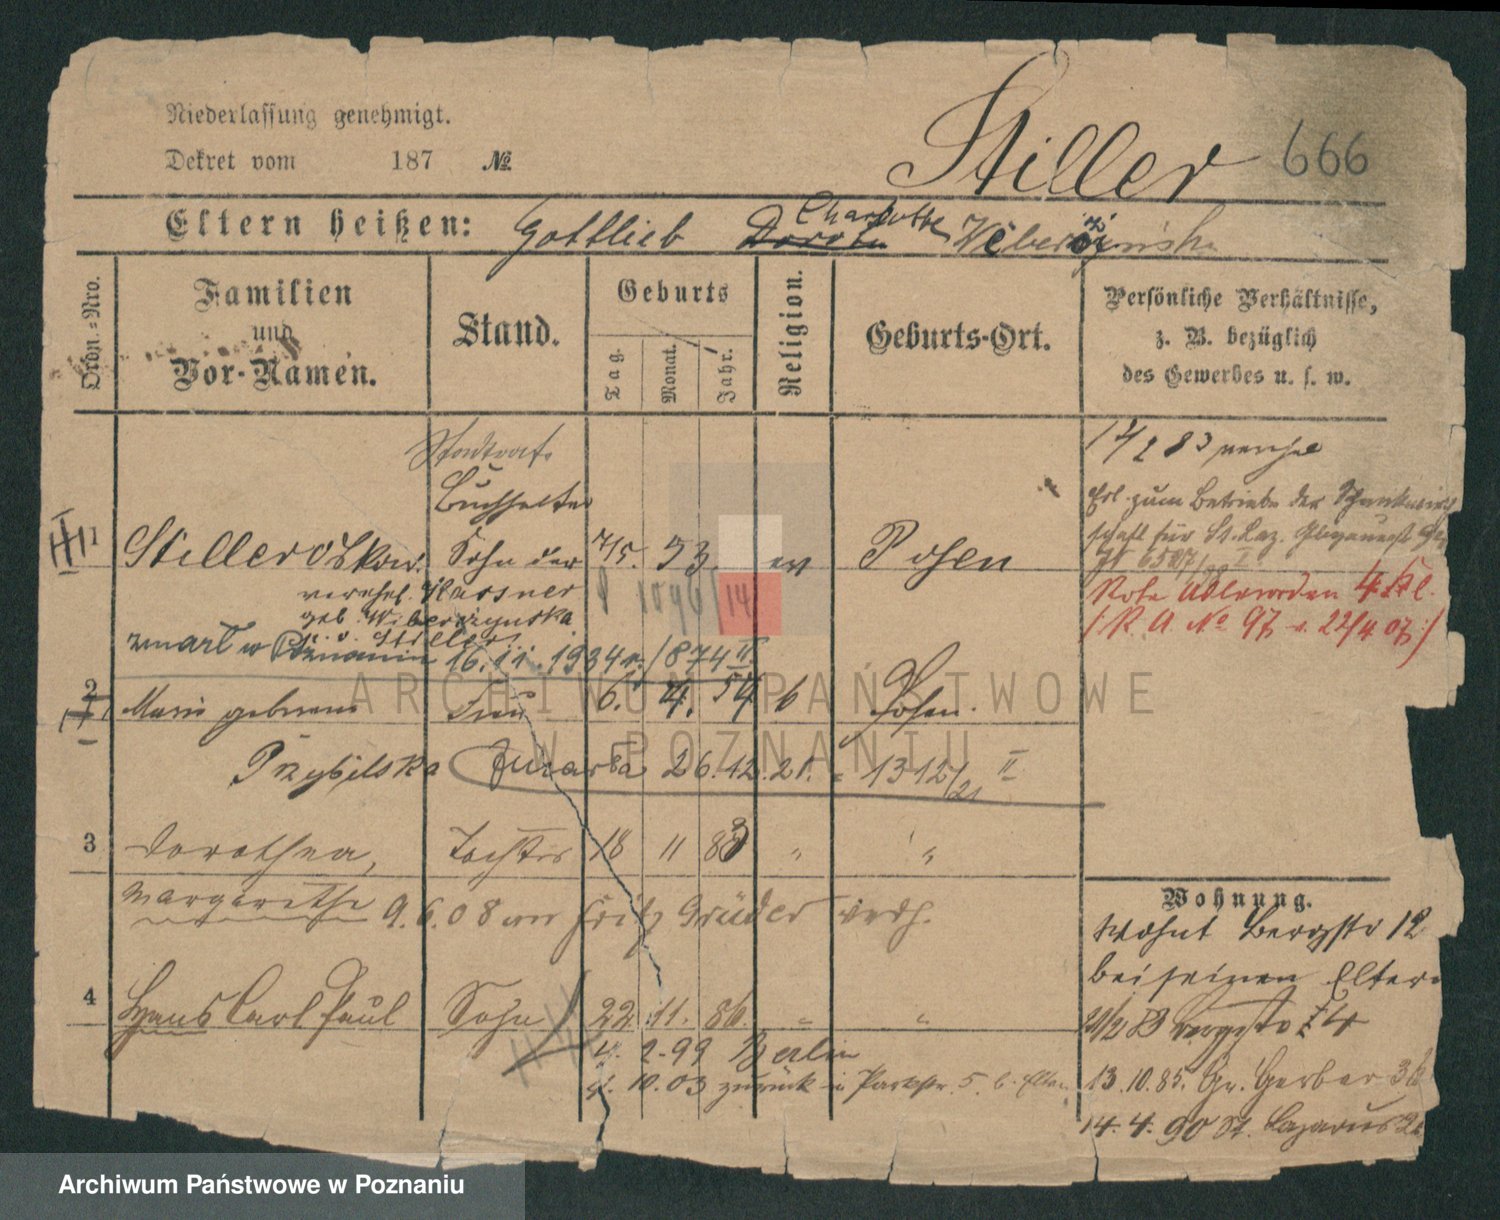 Niederlassung genehmigt.
Dekret vom 187 №
Stiller 666
Eltern heißen: Gottlieb Charlotte
Ordn.=Nro.
Familien und Vor-Namen.
Stand.
Geburts
Tag.
Monat.
Jahr.
Religion.
Geburts-Ort.
Persönliche Verhältnisse,
z. B. bezüglich
des Gewerbes u. s. w.
Buchhalter
1 Stiller Oskar. Sohn der 7/5. 53. ev Posen
verehel. Kassner
geb. Wiberzynska
zmarł w Poznaniu 16.11.1934 r. /874 II
2 Marie geborene Frau 6. 4. 54 Posen.
Przybilska zmarła 26.12.21. 1312/21 II
3 Dorothea, Tochter 18 11 83 " "
Margarethe 9.6.08 an Fritz Grüder verh.
4 Hans Carl Paul Sohn 22. 11. 86. " "
4. 2. 99 Berlin
4. 10. 03 zurück Parkstr. 5. b. Eltern
Erl. zum Betriebe der Schankwirth
schaft für St. Laz.
Rote Adlerorden 4 Kl.
(R. A. № 97 v. 22/4 07.)
Wohnung.
Wohnt Bergstr 12
bei seinen Eltern
13. 10. 85. Gr. Gerber 36
14. 4. 90 St. Lazarus
14
ARCHIWUM PAŃSTWOWE
W POZNANIU
Archiwum Państwowe w Poznaniu